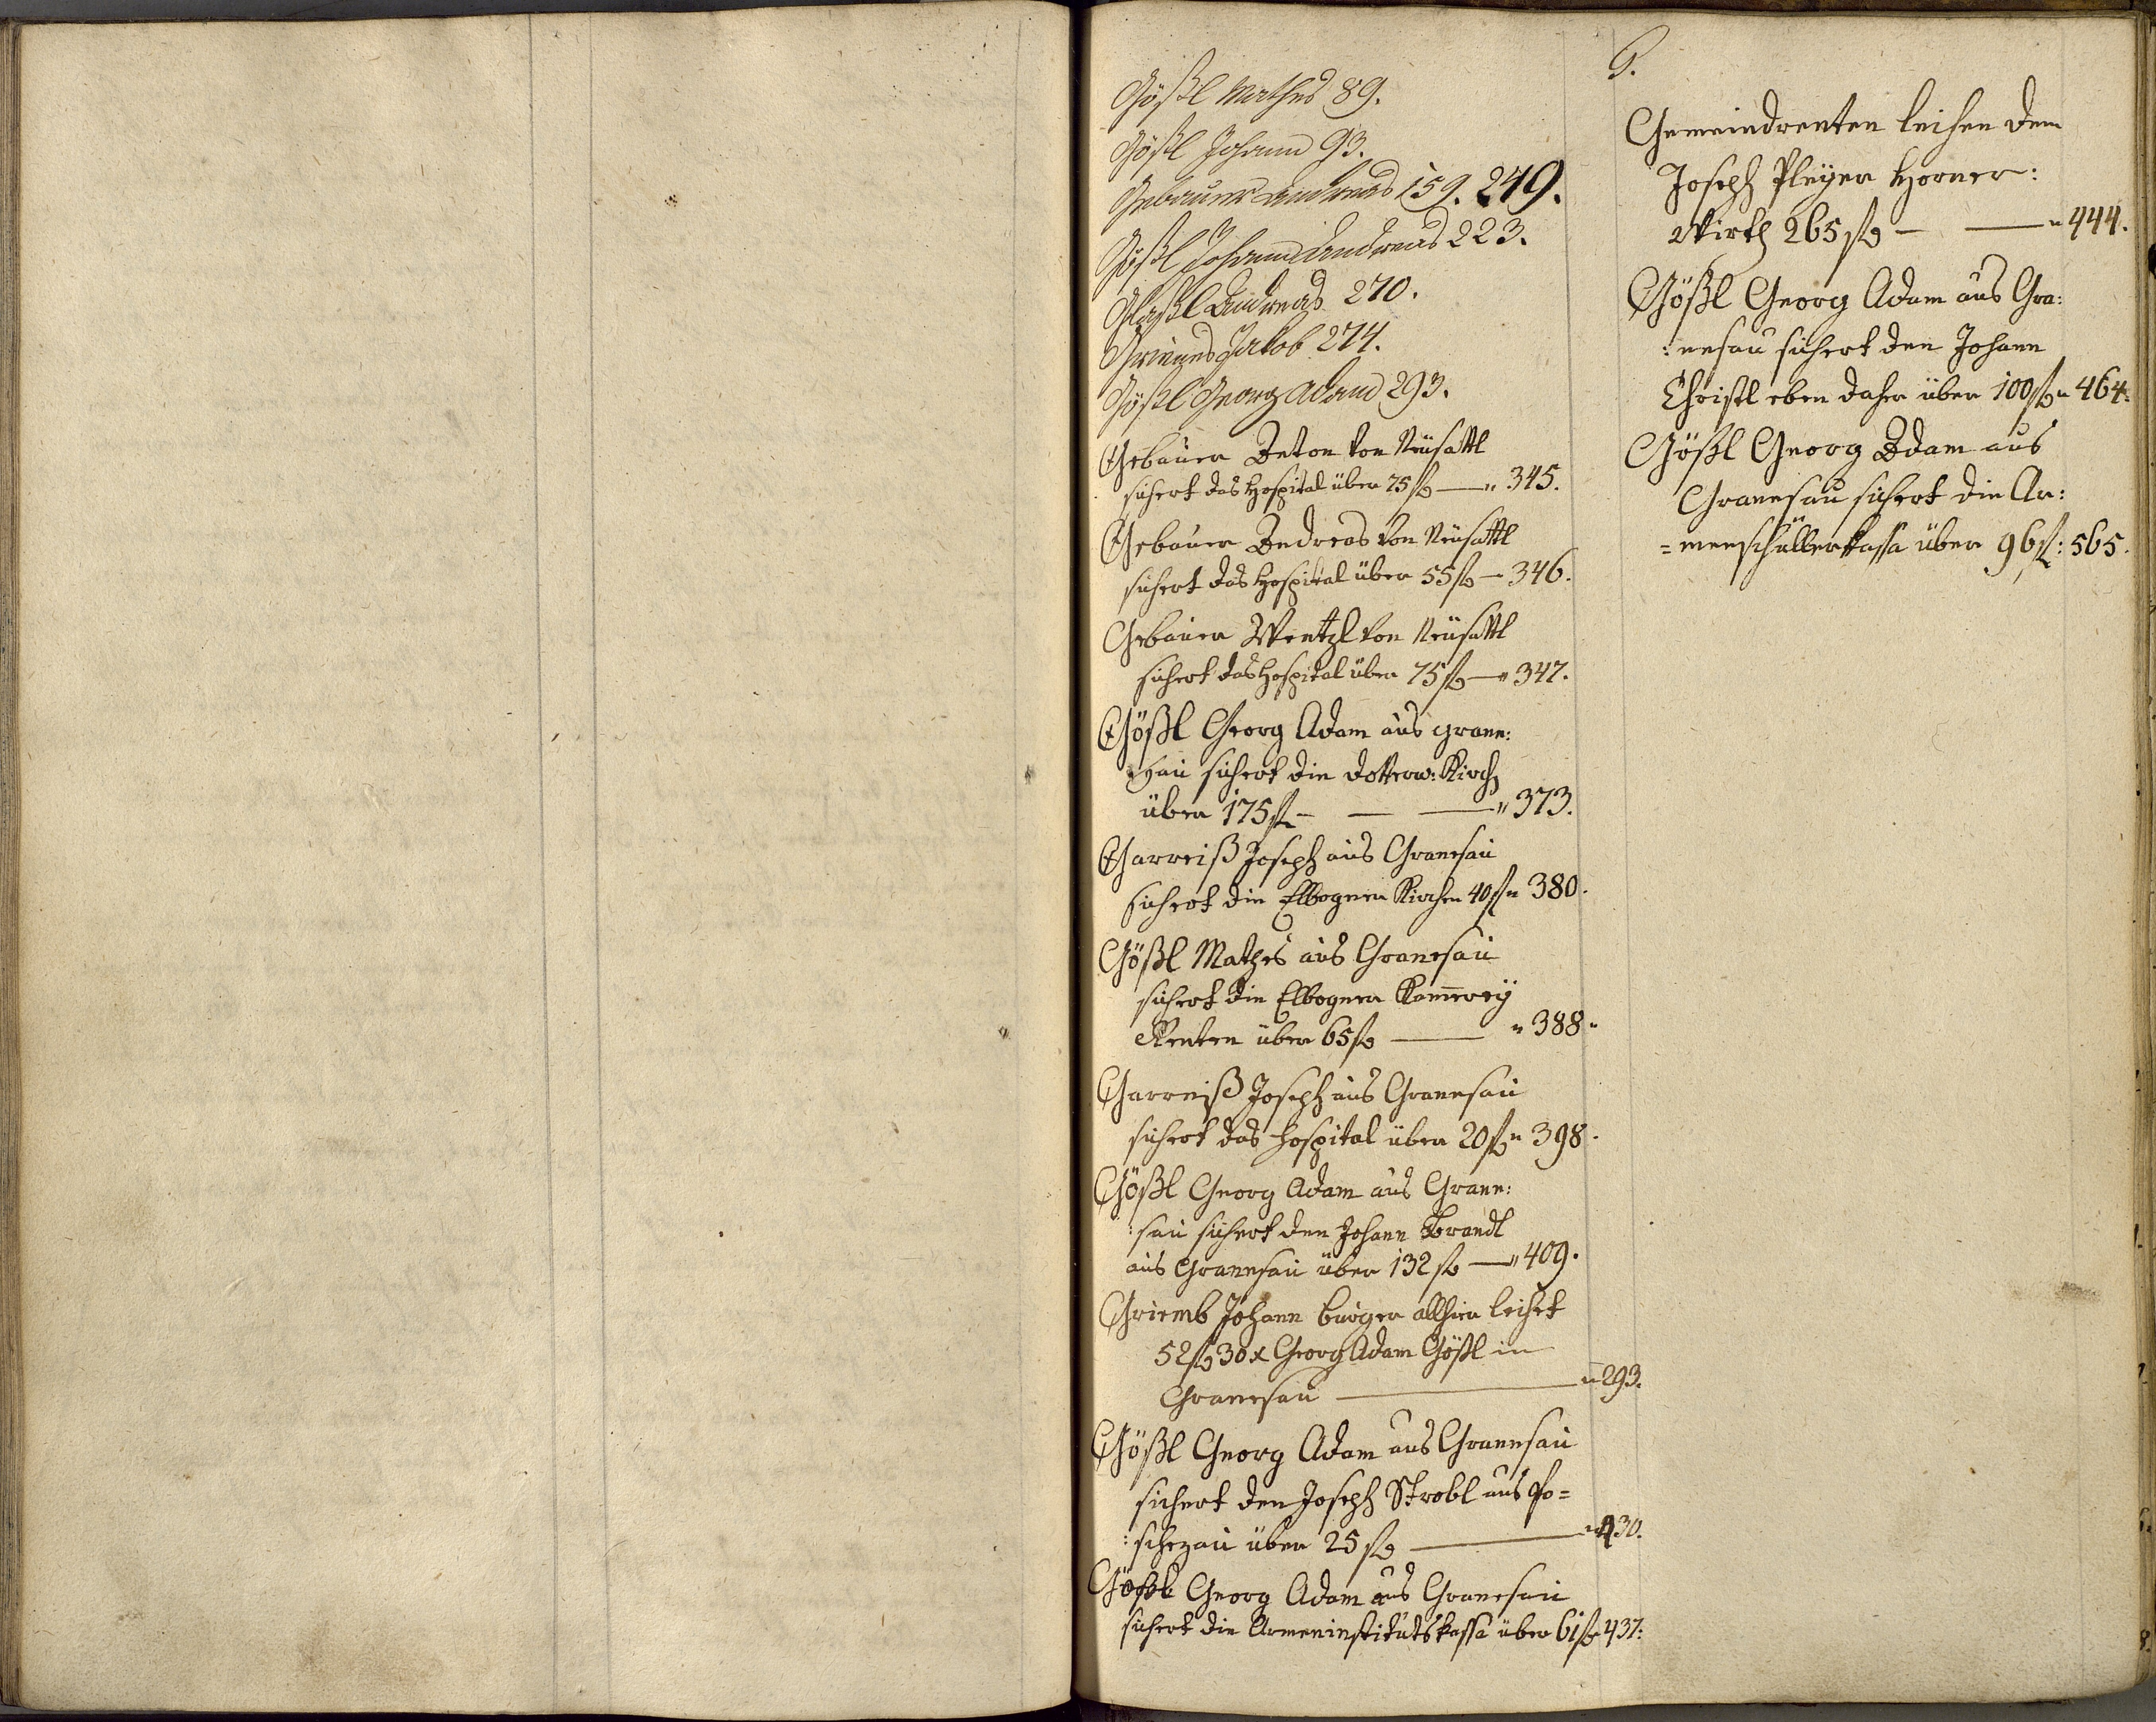 Gößl Mathes 89.
Gößl Johann 93.
Gebauer Andreas 159. 249.
Gößl Johann Andreas 223.
Glaßl Andreas 270.
Jakob 274.
Gößl Georg Adam 293.
Gebauer Anton von Neusattl
sichert das Hospital über 75 f — " 345.
Gebauer Andreas von Neusattl
sichert das Hospital über 55 f — 346.
Gebauer Wentzl von Neusattl
sichert das Hospital über 75 f — " 347.
Gößl Georg Adam aus grane:
sau sichert die Kirch
über 175 f — — — " 373.
Garreiß Joseph aus Granesau
sichert die Elbogner Kirchen 40 f " 380.
Gößl Mathes aus Granesau
sichert die Elbogner Kam̅erey
Renten über 65 f — " 388 "
Garreiß Joseph aus Granesau
sichert das Hospital über 20 f " 398.
Gößl Georg Adam aus Grane:
:sau sichert den Johann Brandl
aus Granesau über 132 f — " 409.
Griemb Johann burger allhier leihet
52 f 30 x Georg Adam Gößl in
Granesau — " 293.
Gößl Georg Adam aus Granesau
sichert den Joseph Strobl aus Po=
:schezau über 25 f — " 430.
Gößl Georg Adam aus Granesau
sichert die Armeninstitutskassa über 61 f 437:
G.
Gemeindrenten leihen dem
Joseph Pleyer Horner:
Wirth 265 f — — " 444.
Gößl Georg Adam aus Gra:
:nesau sichert den Johann
Christl eben daher über 100 f " 464.
Gößl Georg Adam aus
Granesau sichert die Ar:
=menschüllerkassa über 96 f: 565.